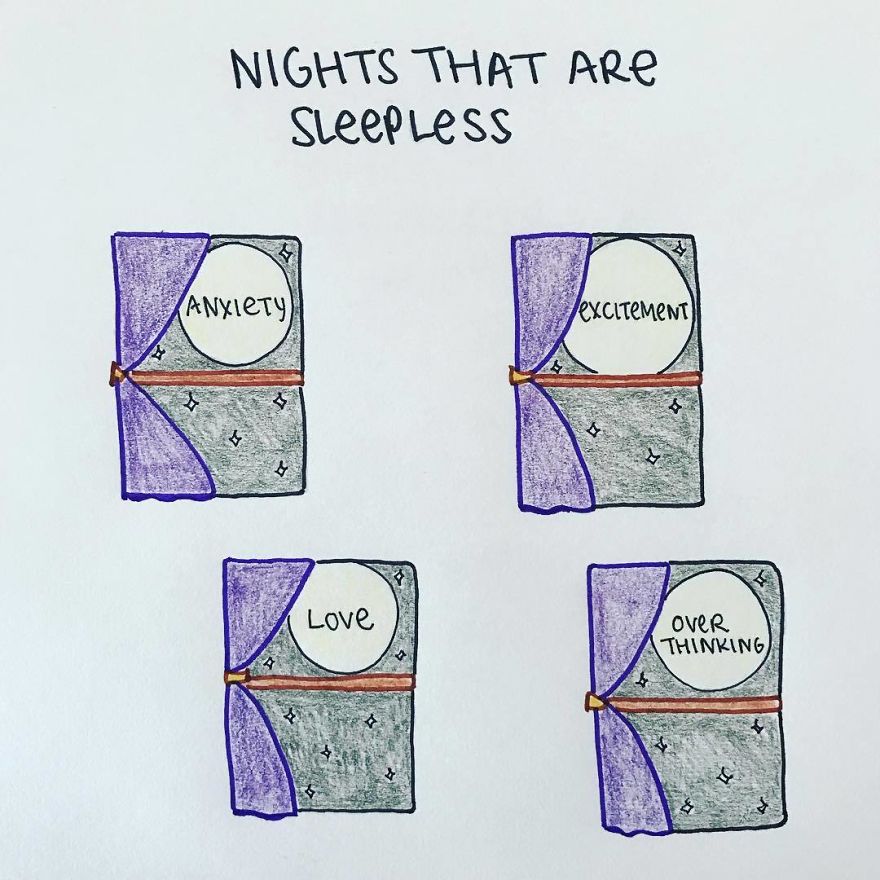 NIGHTS THAT ARe
SLeePLESS
ANXIeTy
eXCITEMeNT
LOVe
OVeR
THINKING